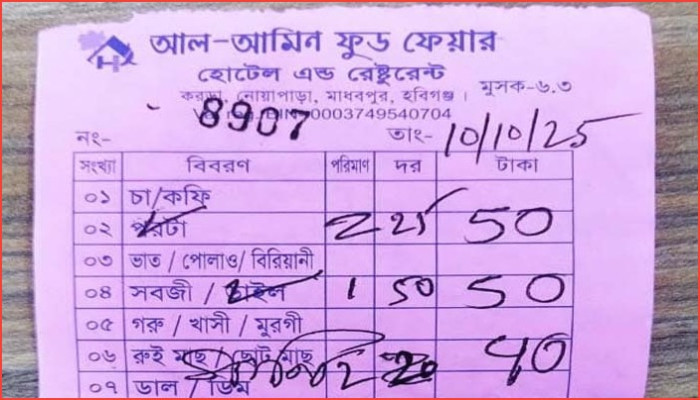 আল-আমিন ফুড ফেয়ার
হোটেল এন্ড রেষ্টুরেন্ট
করড়া, নোয়াপাড়া, মাধবপুর, হবিগঞ্জ।
মুসক-৬.৩
0003749540704
নং- 8907 তাং- 10/10/25
সংখ্যা বিবরণ পরিমাণ দর টাকা
০১ চা/কফি
০২ পরটা 2 25 50
০৩ ভাত / পোলাও/ বিরিয়ানী
০৪ সবজী / ডাইল 1 50 50
০৫ গরু / খাসী / মুরগী
০৬ রুই মাছ / ছোট মাছ 2 20 40
০৭ ডাল / ডিম